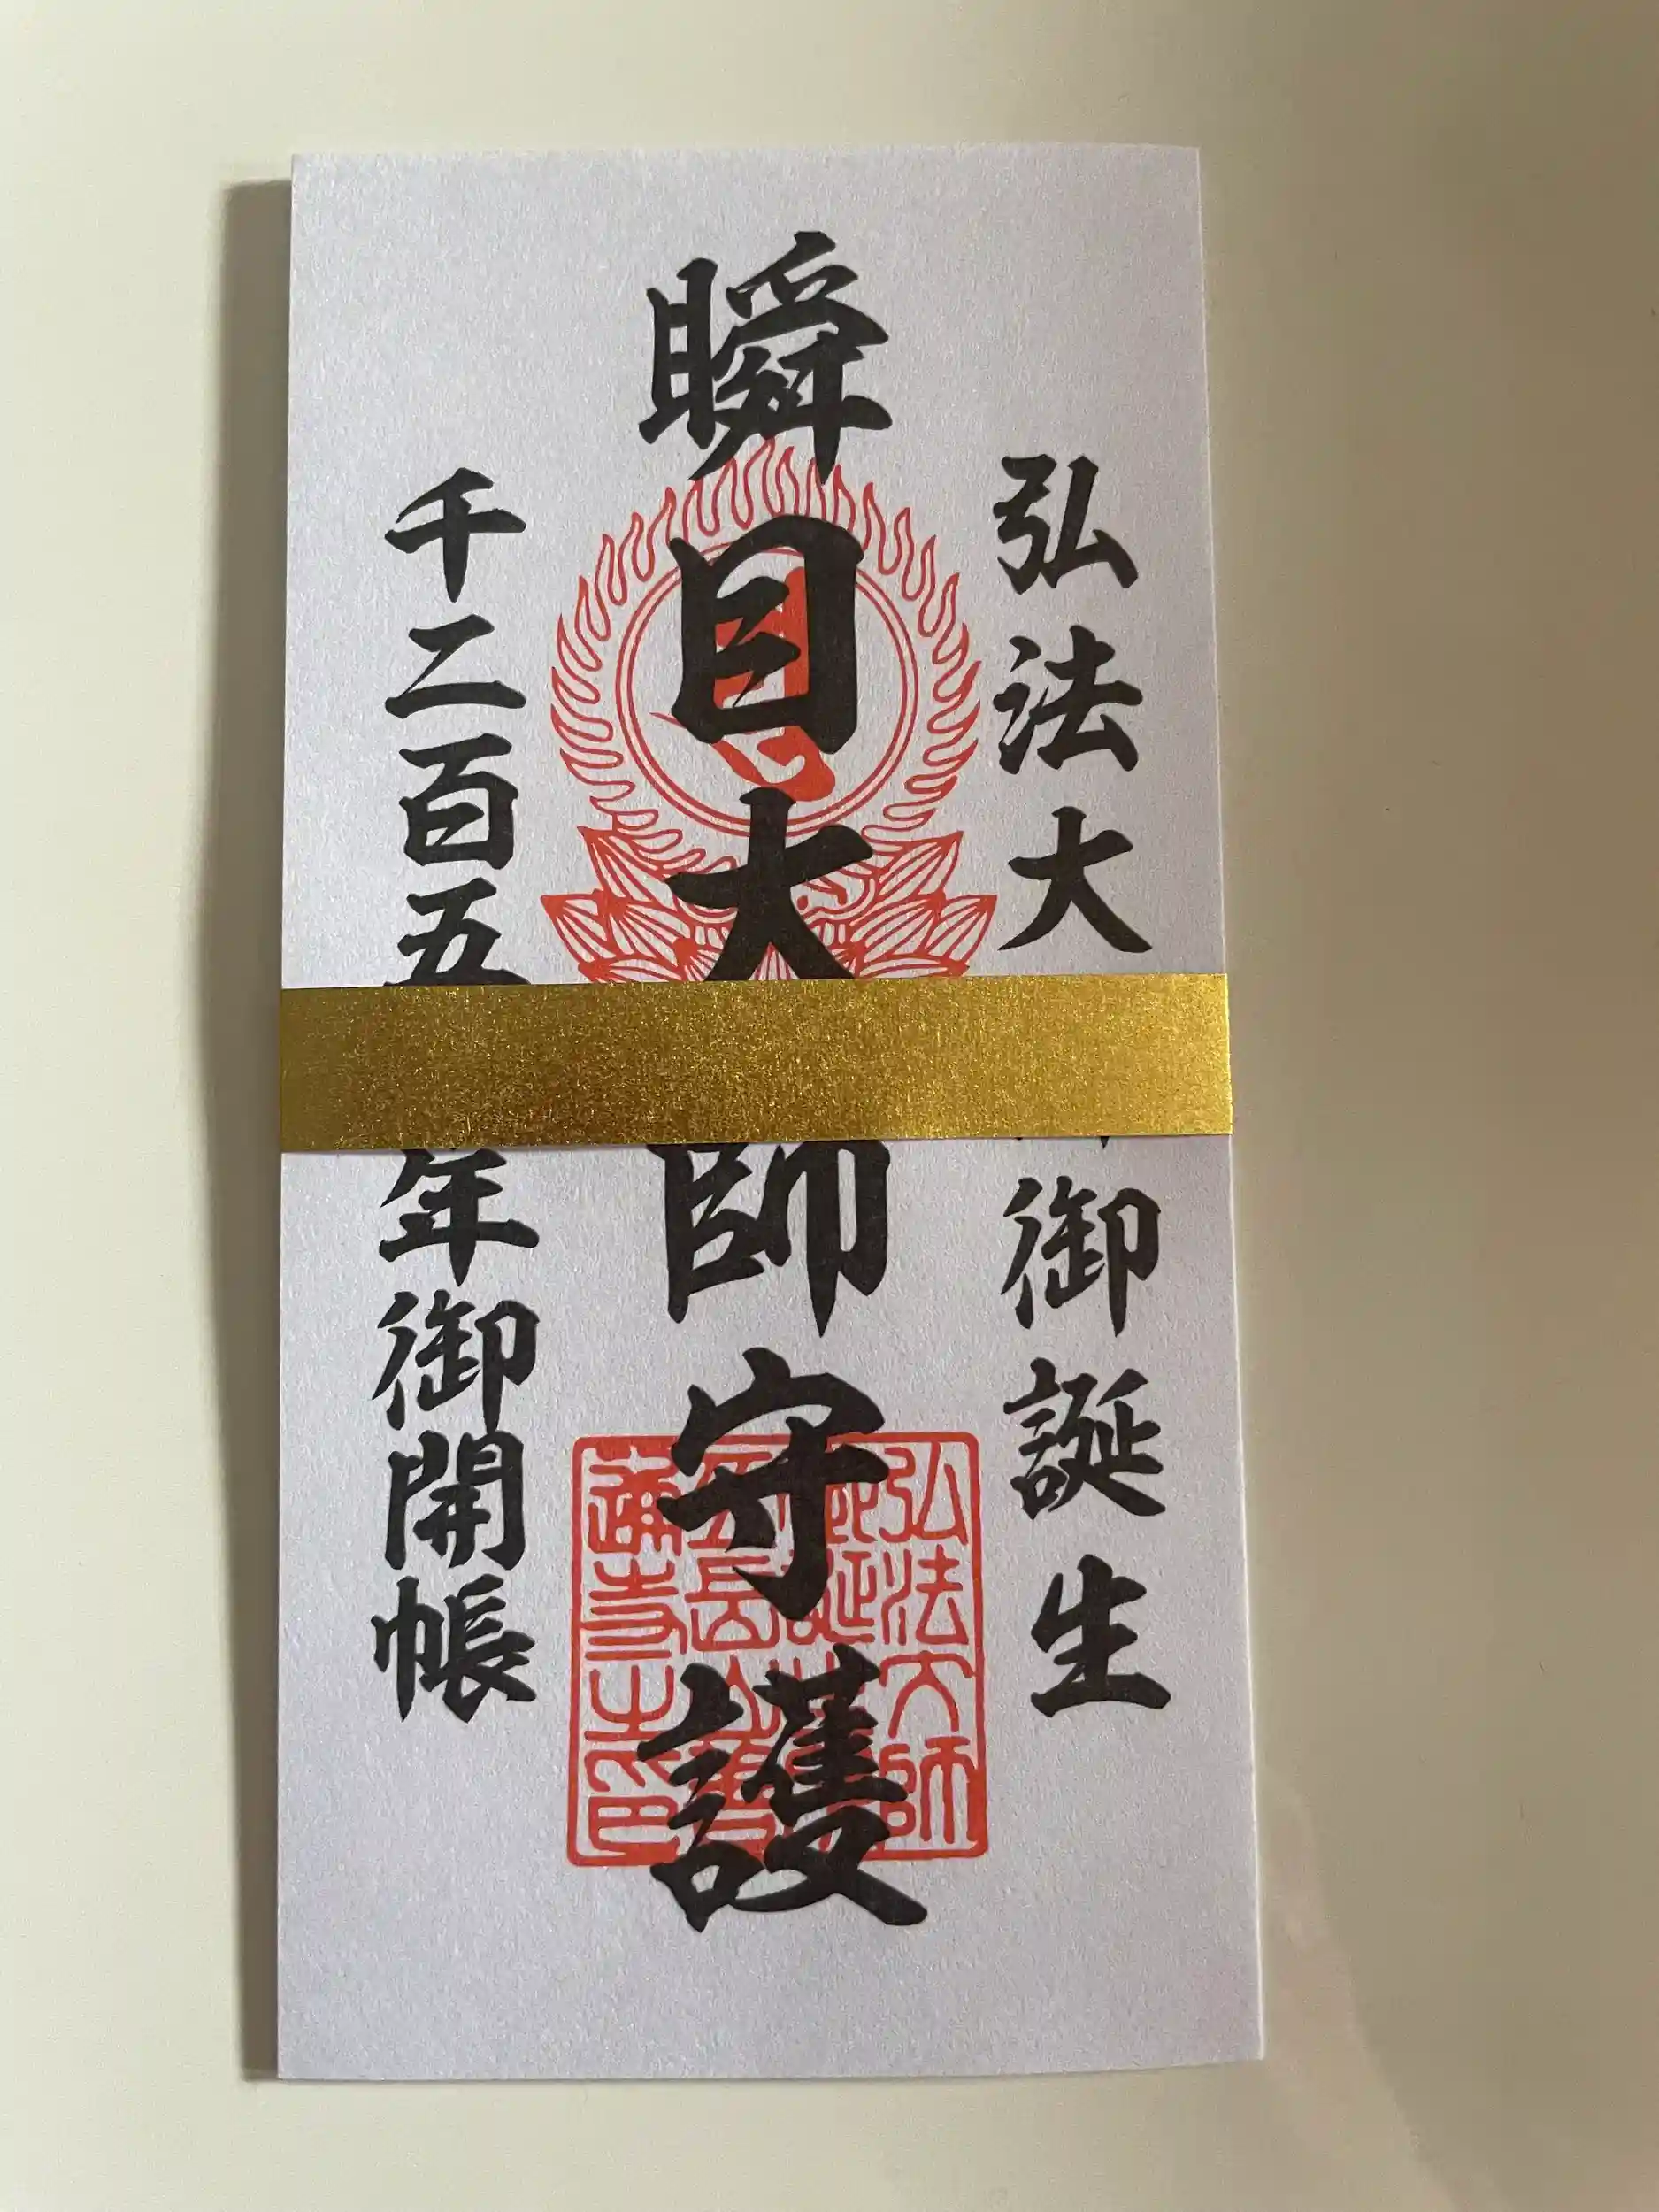 弘法大御誕生
瞬目大師守護
千二百五年御開帳
弘法大師
通寺印